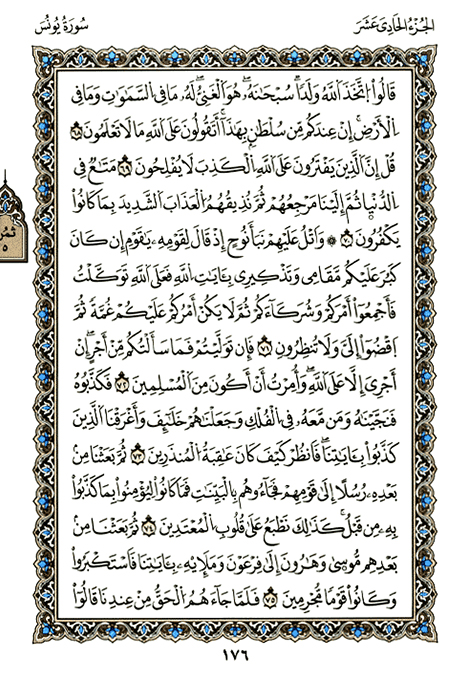 الجزء الحادي عشر
سورة يونس
قَالُوا۟ اتَّخَذَ اللَّهُ وَلَدًا ۗ سُبْحَٰنَهُۥ ۖ هُوَ الْغَنِىُّ ۖ لَهُۥ مَا فِى السَّمَٰوَٰتِ وَمَا فِى
الْأَرْضِ ۚ إِنْ عِندَكُم مِّن سُلْطَٰنٍۭ بِهَٰذَآ ۚ أَتَقُولُونَ عَلَى اللَّهِ مَا لَا تَعْلَمُونَ ٦٨
قُلْ إِنَّ الَّذِينَ يَفْتَرُونَ عَلَى اللَّهِ الْكَذِبَ لَا يُفْلِحُونَ ٦٩ مَتَٰعٌ فِى
الدُّنْيَا ثُمَّ إِلَيْنَا مَرْجِعُهُمْ ثُمَّ نُذِيقُهُمُ الْعَذَابَ الشَّدِيدَ بِمَا كَانُوا۟
يَكْفُرُونَ ٧٠ ۞ وَاتْلُ عَلَيْهِمْ نَبَأَ نُوحٍ إِذْ قَالَ لِقَوْمِهِۦ يَٰقَوْمِ إِن كَانَ
كَبُرَ عَلَيْكُم مَّقَامِى وَتَذْكِيرِى بِـَٔايَٰتِ اللَّهِ فَعَلَى اللَّهِ تَوَكَّلْتُ
فَأَجْمِعُوٓا۟ أَمْرَكُمْ وَشُرَكَآءَكُمْ ثُمَّ لَا يَكُنْ أَمْرُكُمْ عَلَيْكُمْ غُمَّةً ثُمَّ
اقْضُوٓا۟ إِلَىَّ وَلَا تُنظِرُونِ ٧١ فَإِن تَوَلَّيْتُمْ فَمَا سَأَلْتُكُم مِّنْ أَجْرٍ ۖ إِنْ
أَجْرِىَ إِلَّا عَلَى اللَّهِ ۖ وَأُمِرْتُ أَنْ أَكُونَ مِنَ الْمُسْلِمِينَ ٧٢ فَكَذَّبُوهُ
فَنَجَّيْنَٰهُ وَمَن مَّعَهُۥ فِى الْفُلْكِ وَجَعَلْنَٰهُمْ خَلَٰٓئِفَ وَأَغْرَقْنَا الَّذِينَ
كَذَّبُوا۟ بِـَٔايَٰتِنَا ۖ فَانظُرْ كَيْفَ كَانَ عَٰقِبَةُ الْمُنذَرِينَ ٧٣ ثُمَّ بَعَثْنَا مِنۢ
بَعْدِهِۦ رُسُلًا إِلَىٰ قَوْمِهِمْ فَجَآءُوهُم بِالْبَيِّنَٰتِ فَمَا كَانُوا۟ لِيُؤْمِنُوا۟ بِمَا كَذَّبُوا۟
بِهِۦ مِن قَبْلُ ۚ كَذَٰلِكَ نَطْبَعُ عَلَىٰ قُلُوبِ الْمُعْتَدِينَ ٧٤ ثُمَّ بَعَثْنَا مِنۢ
بَعْدِهِم مُّوسَىٰ وَهَٰرُونَ إِلَىٰ فِرْعَوْنَ وَمَلَإِيْهِۦ بِـَٔايَٰتِنَا فَاسْتَكْبَرُوا۟
وَكَانُوا۟ قَوْمًا مُّجْرِمِينَ ٧٥ فَلَمَّا جَآءَهُمُ الْحَقُّ مِنْ عِندِنَا قَالُوٓا۟
ثمن
٥
١٧٦